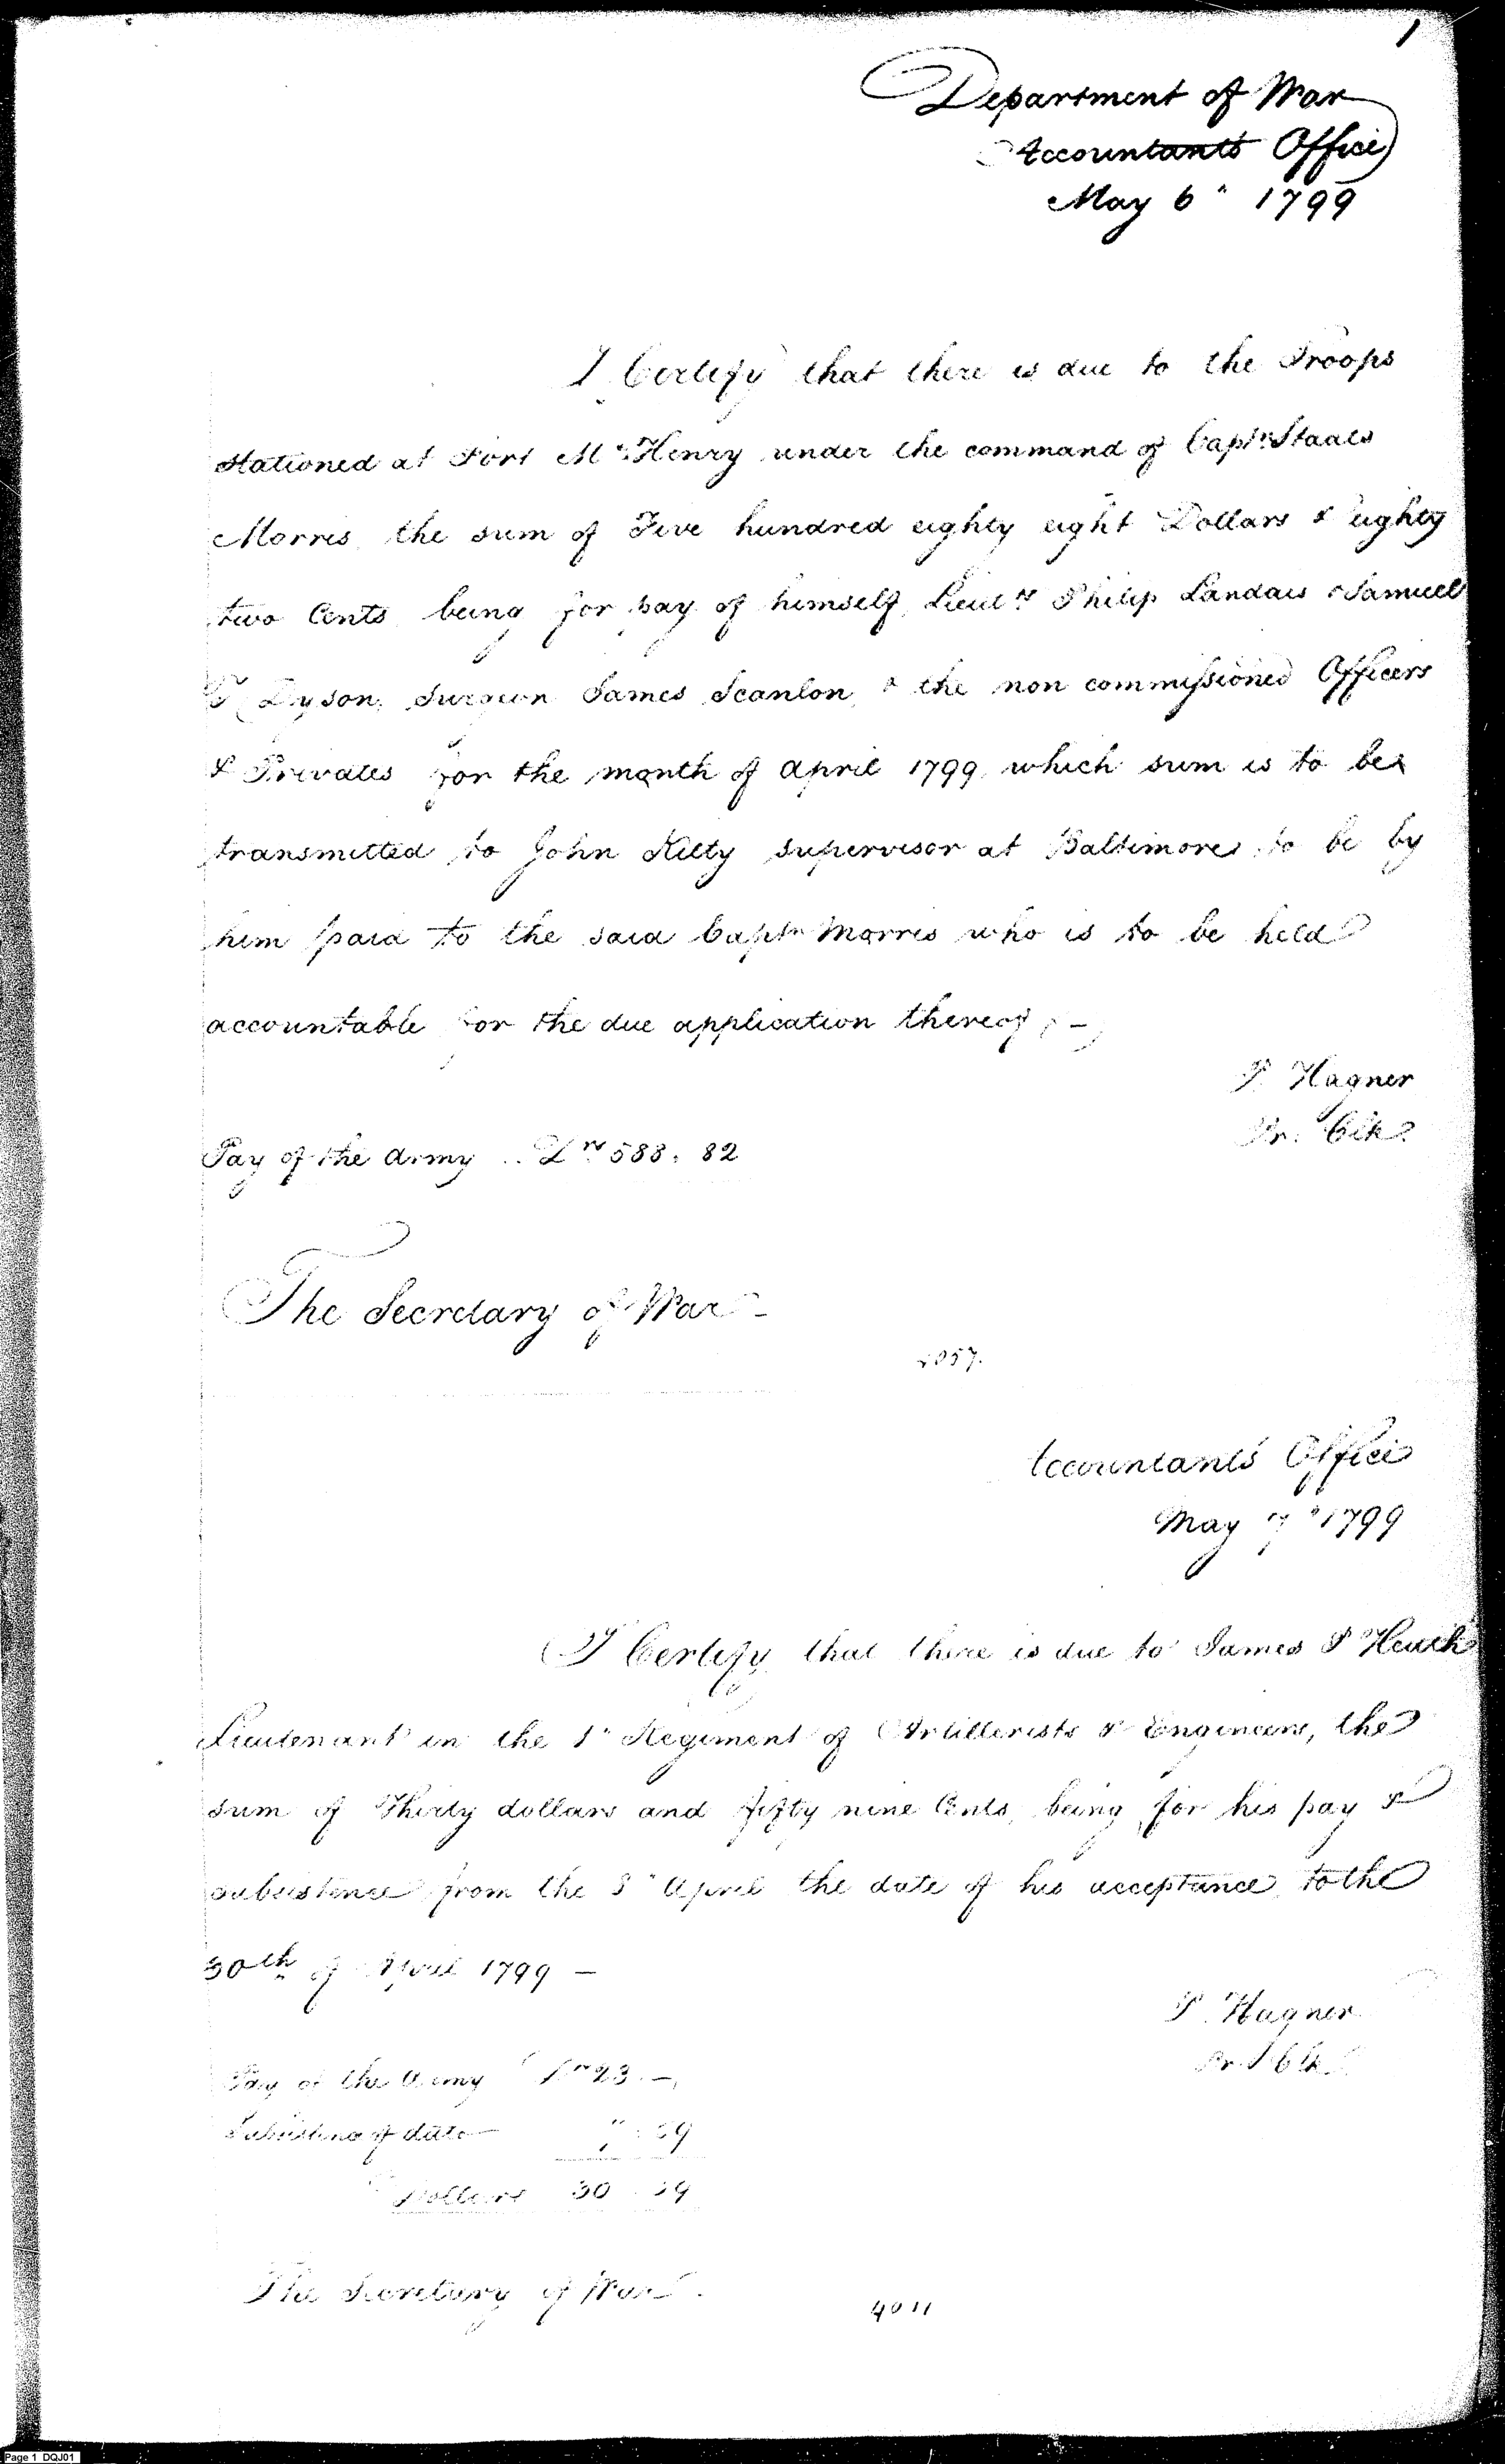 1
Department of War
Accountants Office
May 6" 1799
I Certify that there is due to the Troops
stationed at Fort McHenry under the command of Captn Staats
Morris, the sum of Five hundred eighty eight Dollars & eighty
two Cents, being for pay of himself, Lieuts Philip Landais & Samuel
T Dyson, Surgeon James Scanlon, & the non commissioned Officers
& Privates for the month of April 1799, which sum is to be
transmitted to John Kilty supervisor at Baltimore, to be by
him paid to the said Captn Morris who is to be held
accountable for the due application thereof, -
P. Hagner
Pr. Clk.
Pay of the Army .. Drs 588. 82
The Secretary of War -
057.
Accountants Office
May 7" 1799
I Certify, that there is due to James P Heath
Lieutenant in the 1" Regiment of Artillerists & Engineers, the
sum of Thirty dollars and fifty nine Cents, being for his pay &
subsistence from the 8" April the date of his acceptance, to the
30th of April 1799 -
P. Hagner
Pr. Clk.
Pay of the Army Drs 23. -
Subsistence of ditto " 7. 59
Dollars 30. 59
The Secretary of War.
4011
Page 1 DQJ01